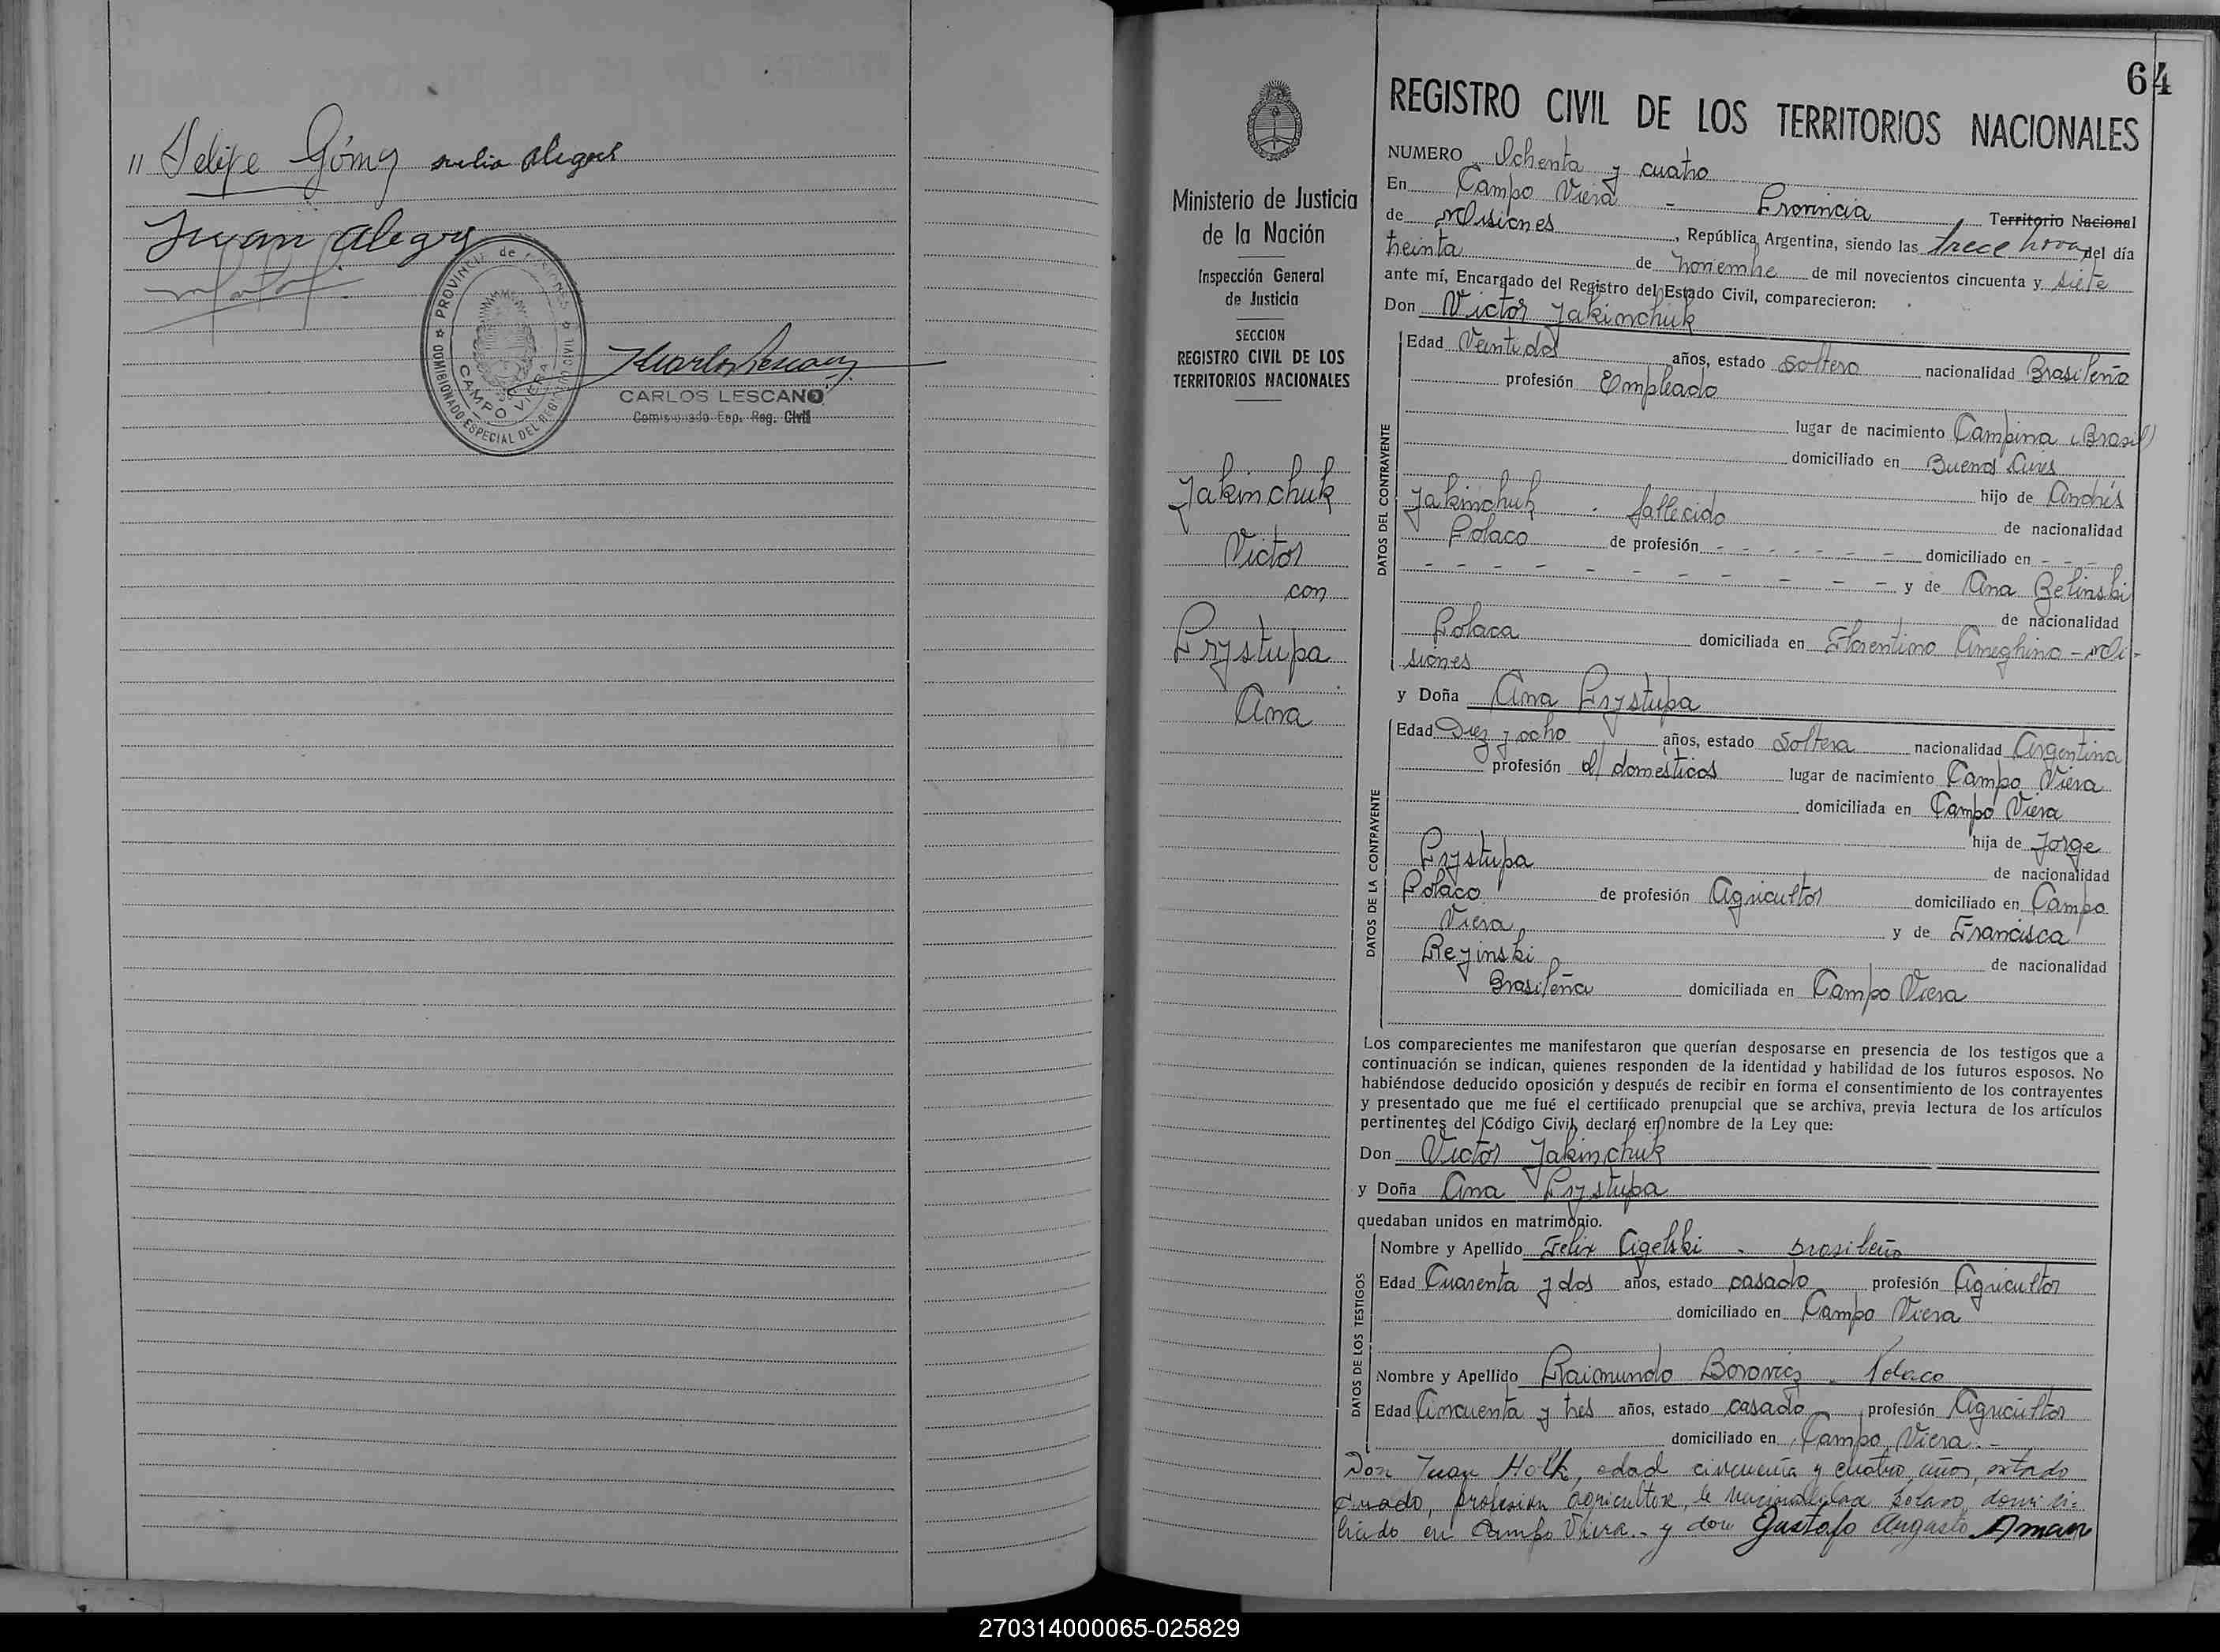 " Felipe Gómez
Juan Alegre
PROVINCIA de MISIONES
COMISIONADO ESPECIAL DEL REGISTRO CIVIL
CAMPO VIERA
CARLOS LESCANO
Comisionado Esp. Reg. Civil
64
Ministerio de Justicia
de la Nación
Inspección General
de Justicia
SECCION
REGISTRO CIVIL DE LOS
TERRITORIOS NACIONALES
Jakinchuk
Victor
con
Prystupa
Ana
REGISTRO CIVIL DE LOS TERRITORIOS NACIONALES
NUMERO Ochenta y cuatro
En Campo Viera - Provincia Territorio Nacional
de Misiones, República Argentina, siendo las trece horas del día
treinta de noviembre de mil novecientos cincuenta y siete
ante mí, Encargado del Registro del Estado Civil, comparecieron:
Don Victor Jakinchuk
DATOS DEL CONTRAYENTE
Edad Veintidos años, estado soltero nacionalidad Brasileño
profesión Empleado
lugar de nacimiento Campina (Brasil)
domiciliado en Buenos Aires
hijo de Andrés
Jakinchuk - fallecido de nacionalidad
Polaco de profesión - - - - - - - domiciliado en - - -
- - - - - - - - - - y de Ana Belinski
de nacionalidad
Polaca domiciliada en Florentino Ameghino - Mi-
siones
y Doña Ana Prystupa
DATOS DE LA CONTRAYENTE
Edad Diez y ocho años, estado Soltera nacionalidad Argentina
profesión q/ domesticos lugar de nacimiento Campo Viera
domiciliada en Campo Viera
hija de Jorge
Prystupa de nacionalidad
Polaco de profesión Agricultor domiciliado en Campo
Viera y de Francisca
Rejinski de nacionalidad
Brasileña domiciliada en Campo Viera
Los comparecientes me manifestaron que querían desposarse en presencia de los testigos que a
continuación se indican, quienes responden de la identidad y habilidad de los futuros esposos. No
habiéndose deducido oposición y después de recibir en forma el consentimiento de los contrayentes
y presentado que me fué el certificado prenupcial que se archiva, previa lectura de los artículos
pertinentes del Código Civil, declaré en nombre de la Ley que:
Don Victor Jakinchuk
y Doña Ana Prystupa
quedaban unidos en matrimonio.
DATOS DE LOS TESTIGOS
Nombre y Apellido Felix Cigelski - brasileño
Edad Cuarenta y dos años, estado casado profesión Agricultor
domiciliado en Campo Viera
Nombre y Apellido Raimundo Borovicz - Polaco
Edad Cincuenta y tres años, estado casado profesión Agricultor
domiciliado en Campo Viera.-
Don Juan Holk, edad cincuenta y cuatro años, estado
casado, profesión agricultor, de nacionalidad polaco, domici=
liado en Campo Viera.- y don Gustafo Augusto Aman
270314000065-025829